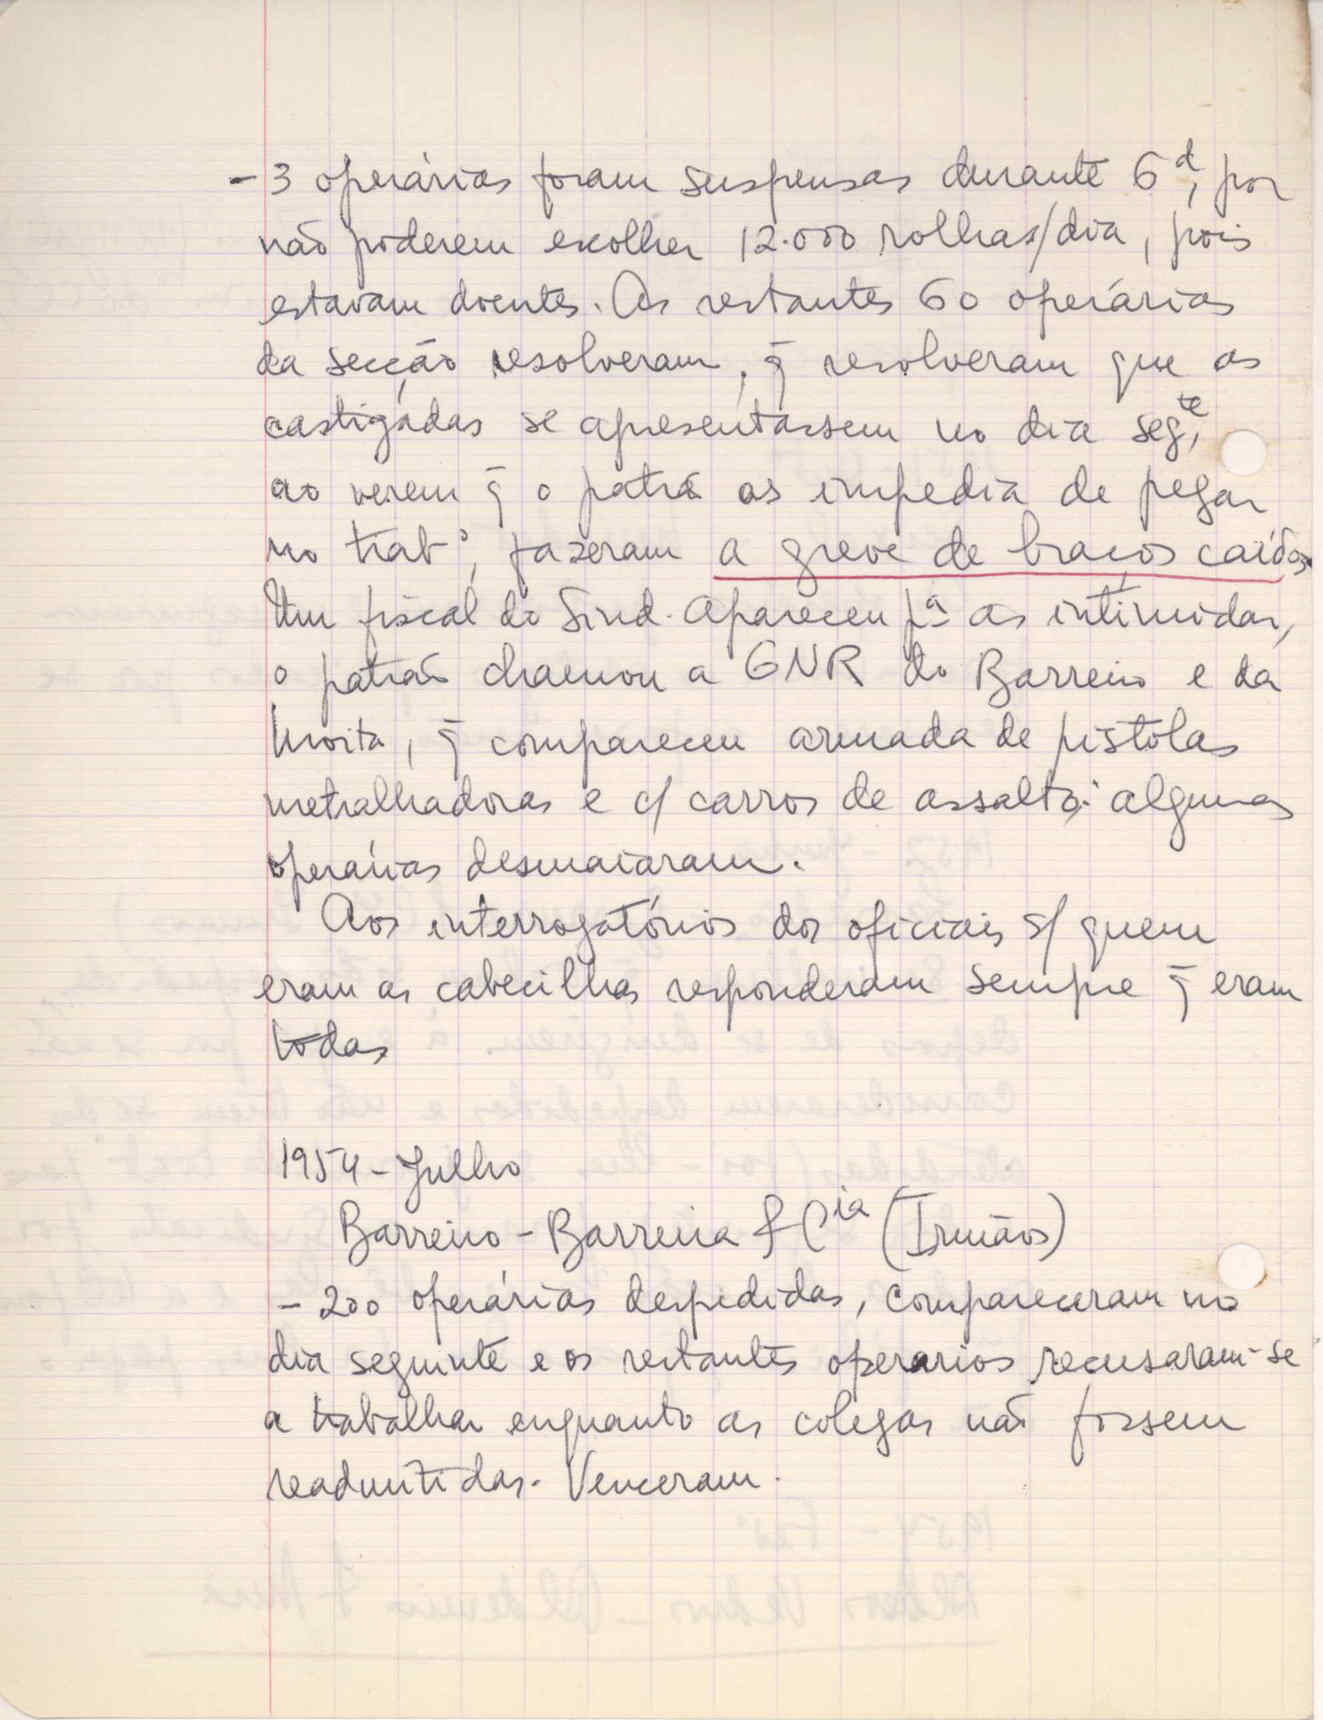 - 3 operárias foram suspensas durante 6 d, por
não poderem escolher 12.000 rolhas/dia, pois
estavam doentes. As restantes 60 operárias
da secção resolveram, q̃ resolveram que as
castigadas se apresentassem no dia segte,
ao verem q̃ o patrão as impedia de pegar
no trabº, fazeram a greve de braços caídos.
Um fiscal do Sind. apareceu pª as intimidar,
o patrão chamou a GNR do Barreiro e da
Moita, q̃ compareceu armada de pistolas
metralhadoras e c/ carros de assalto: algumas
operárias desmaiaram.
Aos interrogatórios dos oficiais s/ quem
eram as cabecilhas responderam sempre q̃ eram
todas
1954 - Julho
Barreiro - Barreira & Cia (Irmãos)
- 200 operárias despedidas, compareceram no
dia seguinte e os restantes operarios recusaram-se
a trabalhar enquanto as colegas não fossem
readmitidas. Venceram.